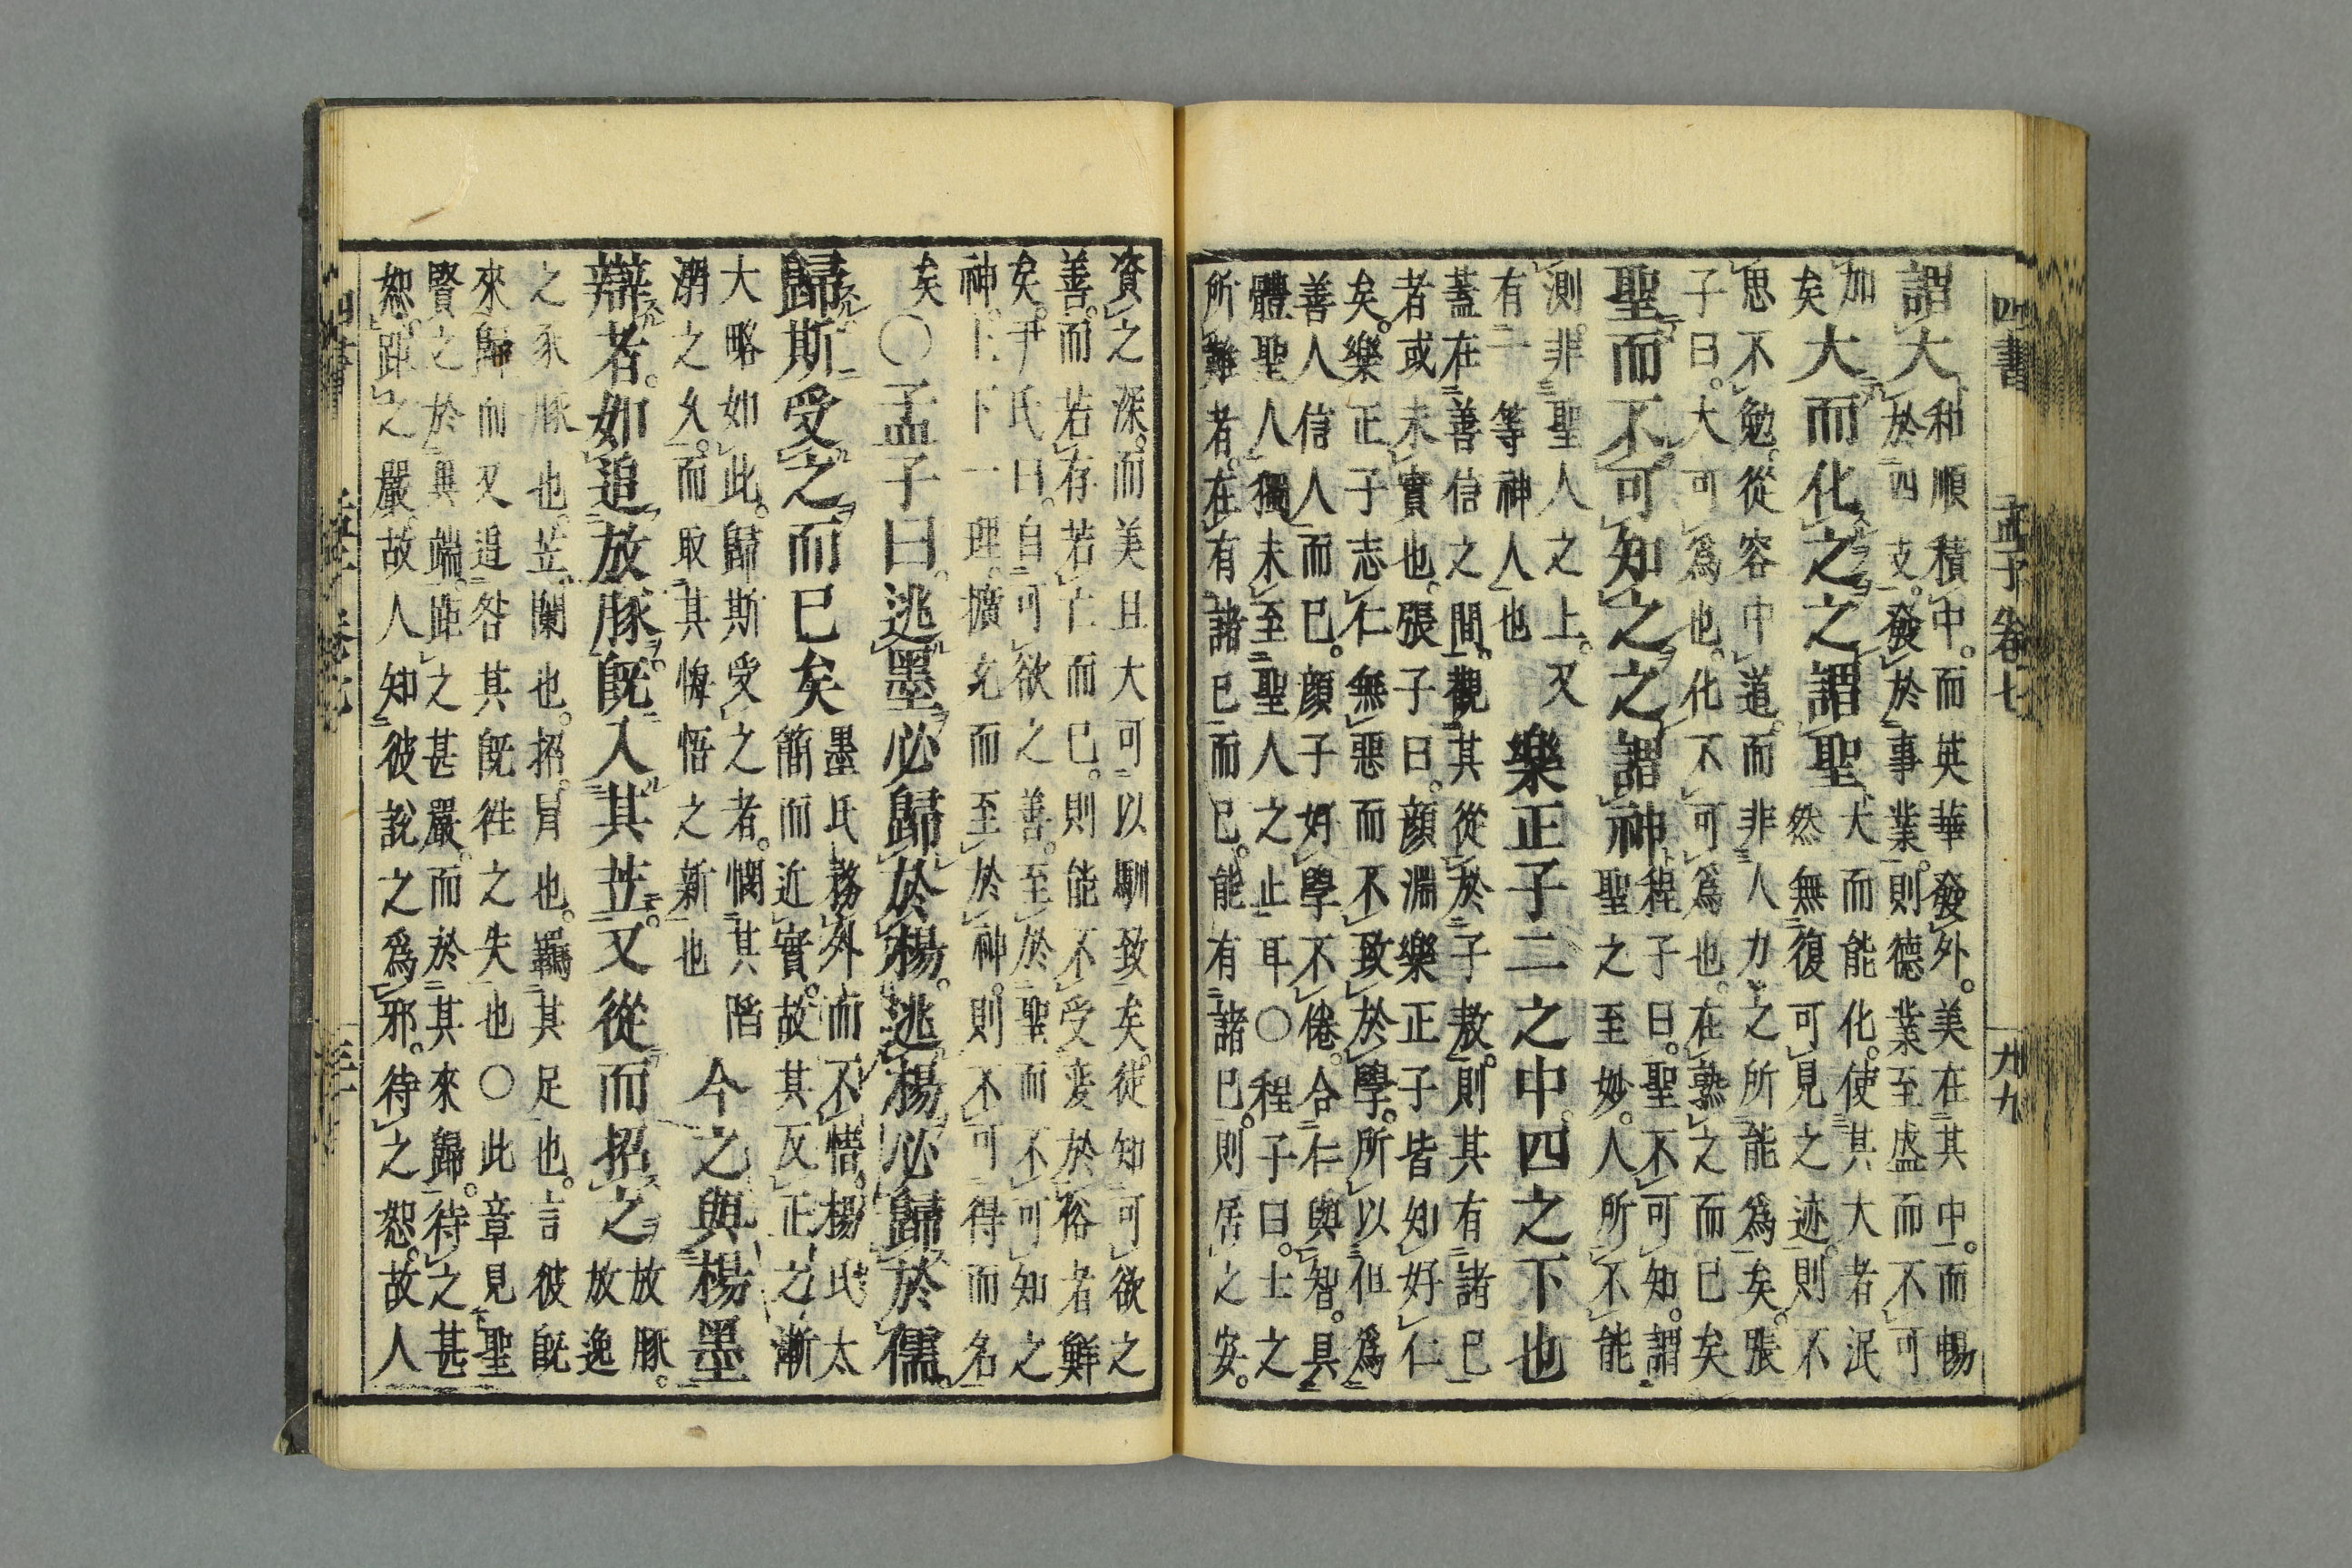 四書　孟子卷七　九九
謂大
和順積中。而英華發外。美在其中。而暢
於四支。發於事業。則德業至盛而不可
加
矣
大而化之之謂聖
大而能化。使其大者泯
然無復可見之迹。則不
思不勉。從容中道。而非人力之所能爲矣。張
子曰。大可爲也。化不可爲也。在熟之而已矣
聖而不可知之之謂神
程子曰。聖不可知。謂
聖之至妙。人所不能
測。非聖人之上。又
有一等神人也
樂正子二之中。四之下也
蓋在善信之間。觀其從於子敖。則其有諸已
者或未實也。張子曰。顔淵樂正子皆知好仁
矣。樂正子志仁無惡而不致於學。所以但爲
善人信人而已。顔子好學不倦。合仁與智。具
體聖人獨未至聖人之止耳〇程子曰。士之
所難者。在有諸已而已。能有諸已。則居之安。
資之深。而美且大可以馴致矣。徒知可欲之
善。而若存若亡而已。則能不受変於俗者鮮
矣。尹氏曰。自可欲之善。至於聖而不可知之
神。上下一理。擴充而至於神。則不可得而名
矣
〇孟子曰。逃墨必歸於楊。逃楊必歸於儒。
歸斯受之而已矣
墨氏務外而不情。楊氏太
簡而近實。故其反正之漸
大略如此。歸斯受之者。憫其陷
溺之久。而取其悔悟之新也
今之與楊墨
辯者。如追放豚。既入其苙。又從而招之
放豚。
放逸
之豕豚也。苙。闌也。招。罥也。羈其足也。言彼既
來歸而又追咎其既徃之失也〇此章見聖
賢之於異端。距之甚嚴。而於其來歸。待之甚
恕。距之嚴。故人知彼說之爲邪。待之恕。故人